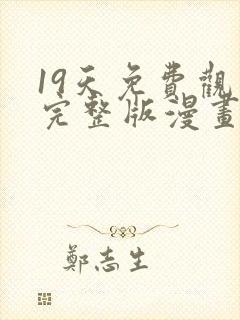 19天免費觀
完整版漫畫
鄭志生